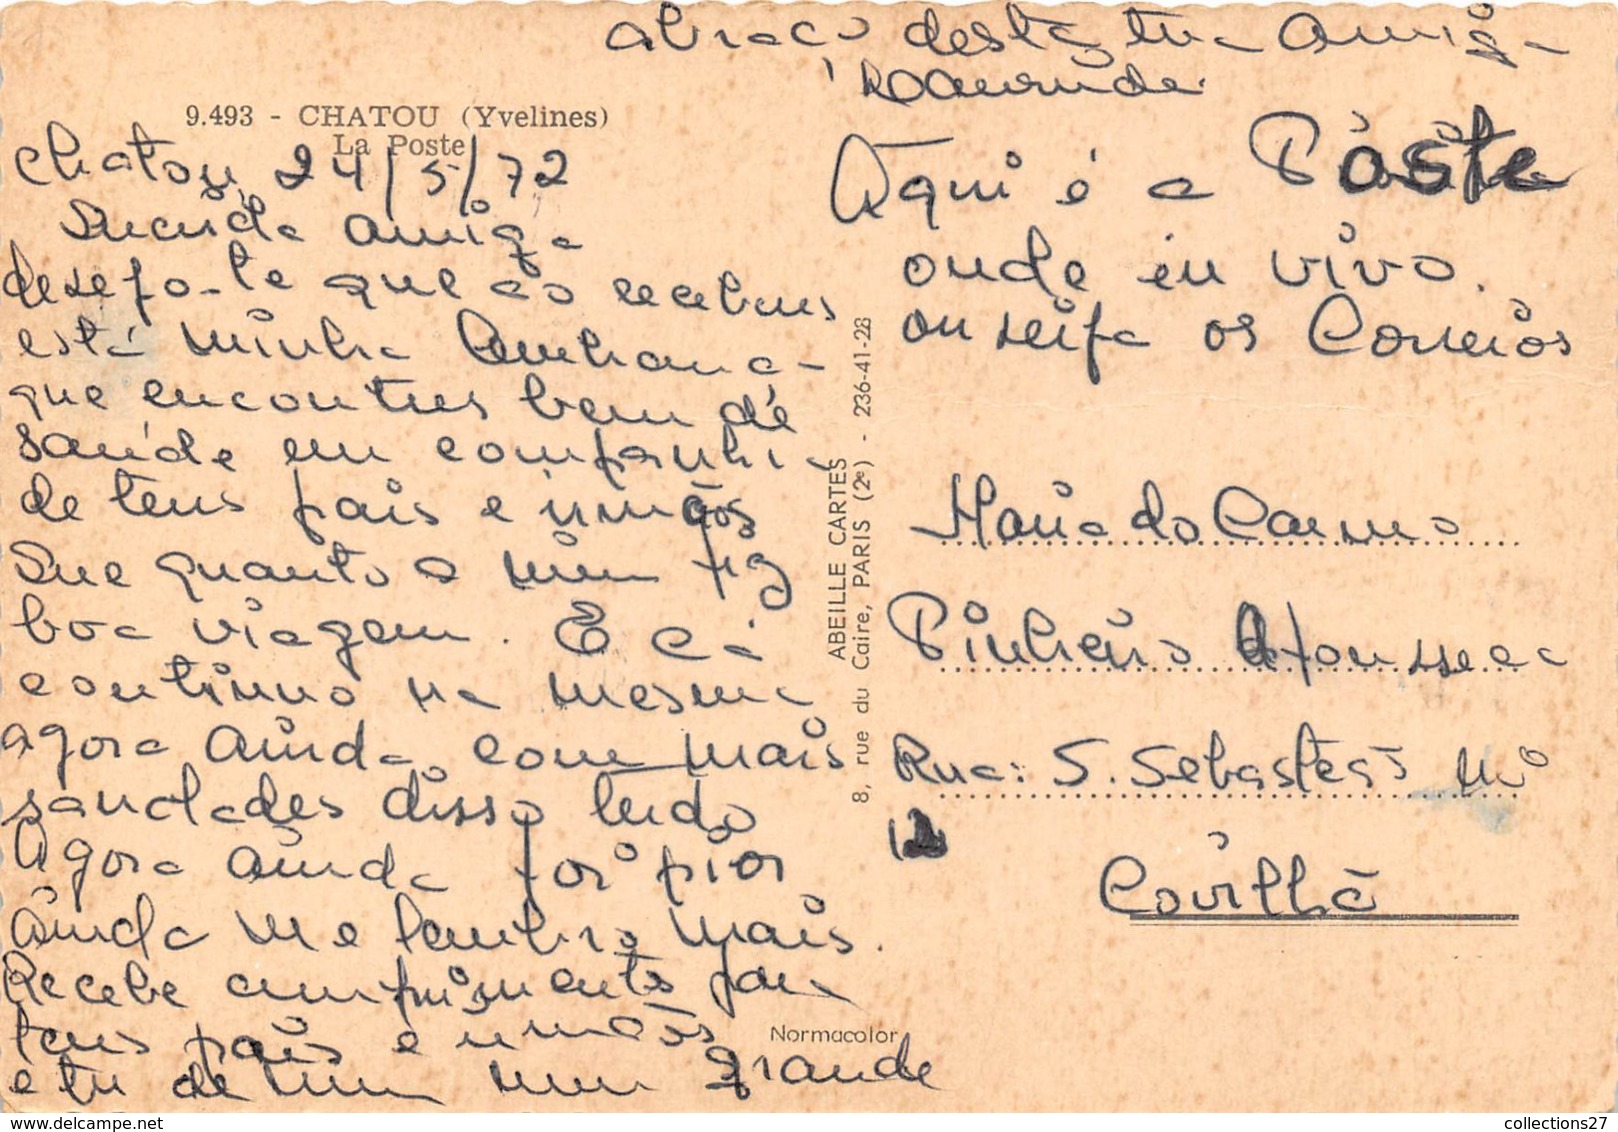 9.493 - CHATOU (Yvelines)
La Poste
Chatou 24/5/72
Querida amiga
desejo-te que ao receberes
esta minha lembrança
que encontres bem de
saúde em companhia
de teus pais e irmãos
Que quanto a mim fiz
boa viagem. E cá
continuo na mesma
agora ainda com mais
saudades disso tudo
Agora ainda foi pior
ainda me lembro mais.
Recebe cumprimentos para
teus pais e irmãos
e tu de mim um grande
abraço desta tua amiga
Aqui é a Poste
onde eu vivo.
ou seija os Correios
Maria do Carmo
Pinheiro Afonsseca
Rua: S. Sebasteão Nº
12
Covilhã
ABEILLE CARTES
8, rue du Caire, PARIS (2e) - 236-41-28
Normacolor
collections27